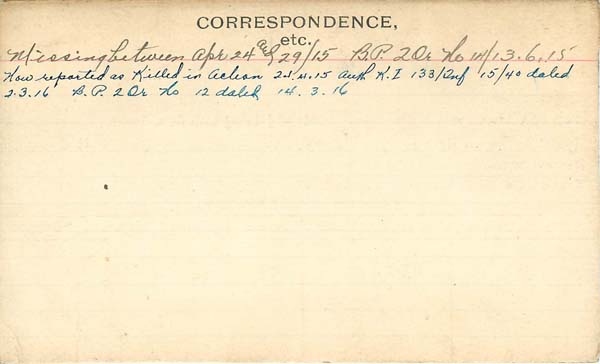 CORRESPONDENCE,
etc.
Missing between Apr 24 and 29/15 B.P. 2 Or No 14/13.6.15
Now reported as Killed in Action 24.4.15 Auth K.I 133/Inf 15/40 dated
2.3.16 B.P. 2 Or No 12 dated 14.3.16